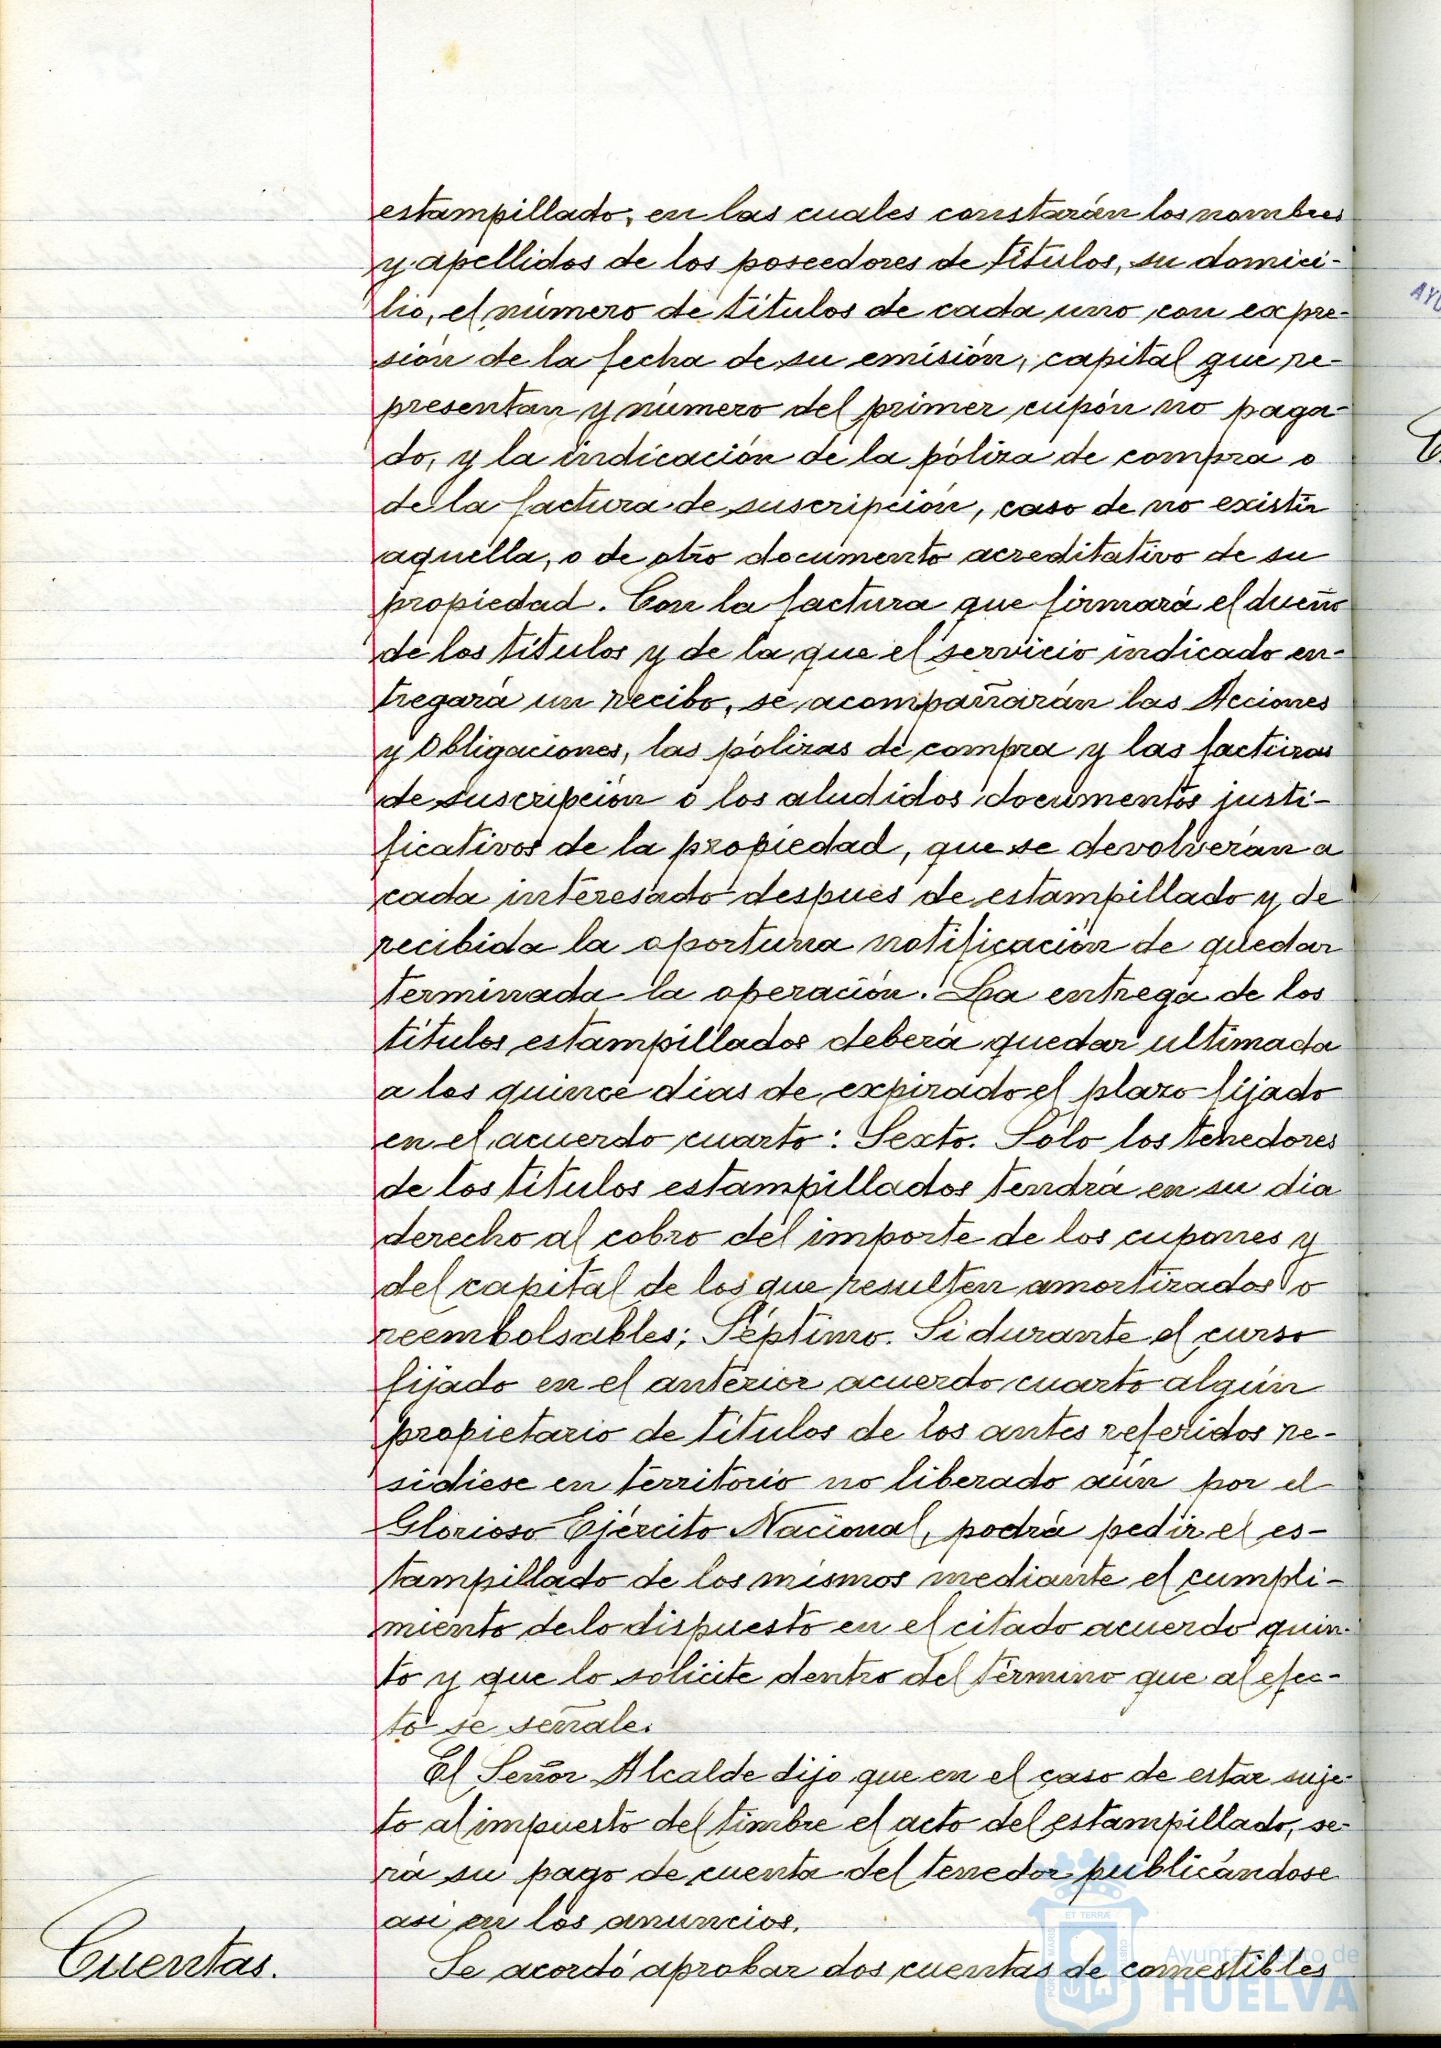 estampillado, en las cuales constarán los nombres
y apellidos de los poseedores de títulos, su domici-
lio, el número de títulos de cada uno con expre-
sión de la fecha de su emisión, capital que re-
presentan y número del primer cupón no paga-
do, y la indicación de la póliza de compra o
de la factura de suscripción, caso de no existir
aquella, o de otro documento acreditativo de su
propiedad. Con la factura que firmará el dueño
de los títulos y de la que el servicio indicado en-
tregará un recibo, se acompañarán las Acciones
y Obligaciones, las pólizas de compra y las facturas
de suscripción o los aludidos documentos justi-
ficativos de la propiedad, que se devolverán a
cada interesado después de estampillado y de
recibida la oportuna notificación de quedar
terminada la operación. La entrega de los
títulos estampillados deberá quedar ultimada
a los quince días de expirado el plazo fijado
en el acuerdo cuarto: Sexto. Sólo los tenedores
de los títulos estampillados tendrá en su día
derecho al cobro del importe de los cupones y
del capital de los que resulten amortizados o
reembolsables; Séptimo. Si durante el curso
fijado en el anterior acuerdo cuarto algún
propietario de títulos de los antes referidos re-
sidiese en territorio no liberado aún por el
Glorioso Ejército Nacional, podrá pedir el es-
tampillado de los mismos mediante el cumpli-
miento de lo dispuesto en el citado acuerdo quin-
to y que lo solicite dentro del término que al efec-
to se señale.
El Señor Alcalde dijo que en el caso de estar suje-
to al impuesto del timbre el acto del estampillado, se-
rá su pago de cuenta del tenedor publicándose
así en los anuncios.
Cuentas.
Se acordó aprobar dos cuentas de comestibles
Ayuntamiento de
HUELVA